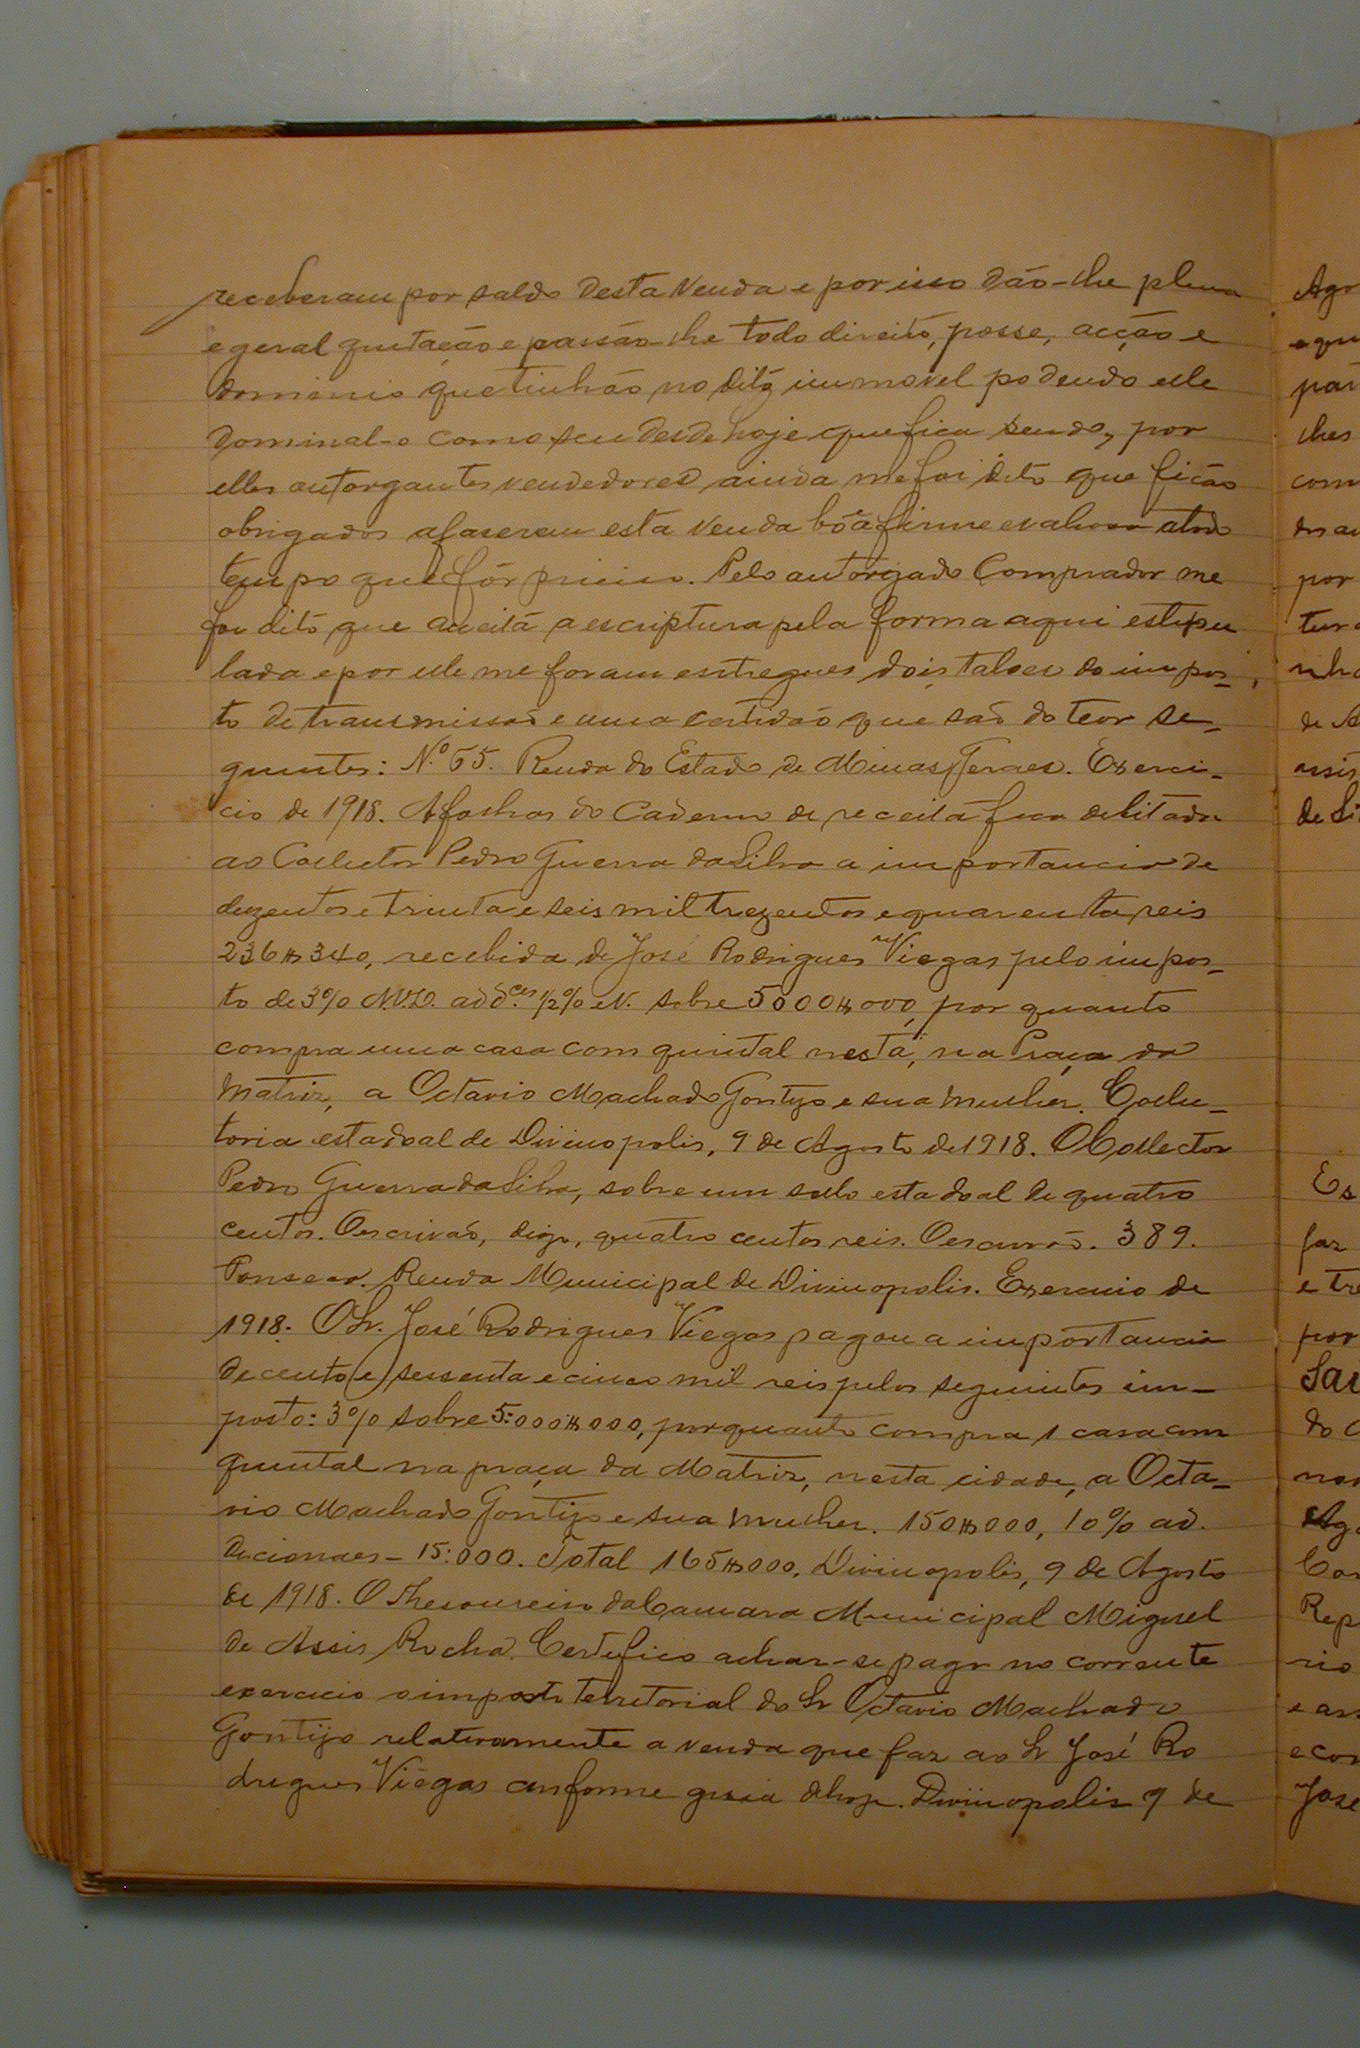 receberam por saldo desta venda e por isso dão-lhe plena
e geral quitação e passão-lhe todo direito, posse, acção e
dominio que tinhão no dito immovel podendo elle
dominal-o como seu desde hoje que fica sendo, por
elles outorgantes vendedores ainda me foi dito que ficão
obrigados a faserem esta venda bôa firme e valiosa atodo
tempo que fôr preciso. Pelo outorgado Comprador me
foi dito que acceita a escriptura pela forma aqui estipu
lada e por elle me foram entregues dois talões do impos-
to de transmissão e uma certidão que são do teor se-
guintes: Nº 65. Renda do Estado de Minas Geraes. Exerci-
cio de 1918. A folhas do Caderno de receita fica debitada
ao Collector Pedro Guerra da Silva a importancia de
duzentos e trinta e seis mil trezentos e quarenta reis
236$340, recebida de José Rodrigues Viegas pelo impos-
to de 3% N.V.D. add.ces 1/2% e N. sobre 5000$000, por quanto
compra uma casa com quintal nesta, na Praça da
Matriz, a Octavio Machado Gontijo e sua mulher. Collec-
toria estadoal de Divinopolis, 9 de Agosto de 1918. O Collector
Pedro Guerra da Silva, sobre um sello estadoal de quatro
centos. O escrivão, digo, quatro centos reis. O escrivão. 389.
Fonseca. Renda Municipal de Divinopolis. Exercicio de
1918. O Sr. José Rodrigues Viegas pagou a importancia
de cento e sessenta e cinco mil reis pelos seguintes im-
posto: 3% sobre 5:000$000, porquanto compra 1 casa com
quintal na praça da Matriz, nesta cidade, a Octa-
vio Machado Gontijo e sua mulher. 150$000, 10% ad.
dicionaes - 15:000. Total 165$000. Divinopolis, 9 de Agosto
de 1918. O Thesoureiro da Camara Municipal Miguel
de Assis Rocha. Certifico achar-se pago no corrente
exercicio o imposto territorial do Sr Octavio Machado
Gontijo relativamente a venda que faz ao Sr José Ro
drigues Viégas conforme guia dhoje. Divinopolis 9 de